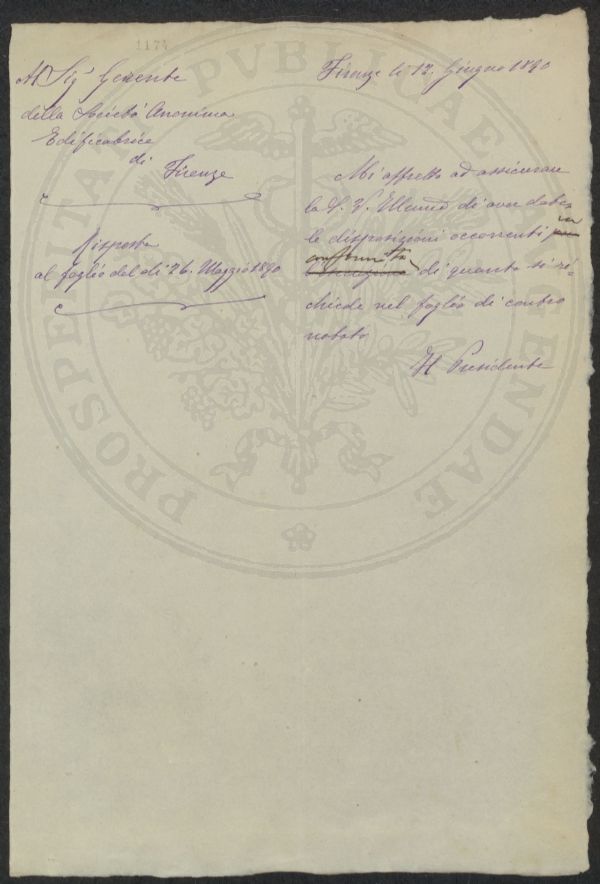 1174
Al Sig.r Gerente
della Società Anonima
Edificatrice
di
Firenze
Risposta
al foglio del dì 26. Maggio 1890
Firenze li 12. Giugno 1890
Mi affretto ad assicurare
la S. V. Ill.ma di aver dato
le disposizioni occorrenti, in
conformità di quanto si ri-
chiede nel foglio di contro
notato
Il Presidente
PROSPERITATI PVBLICAE AVGENDAE